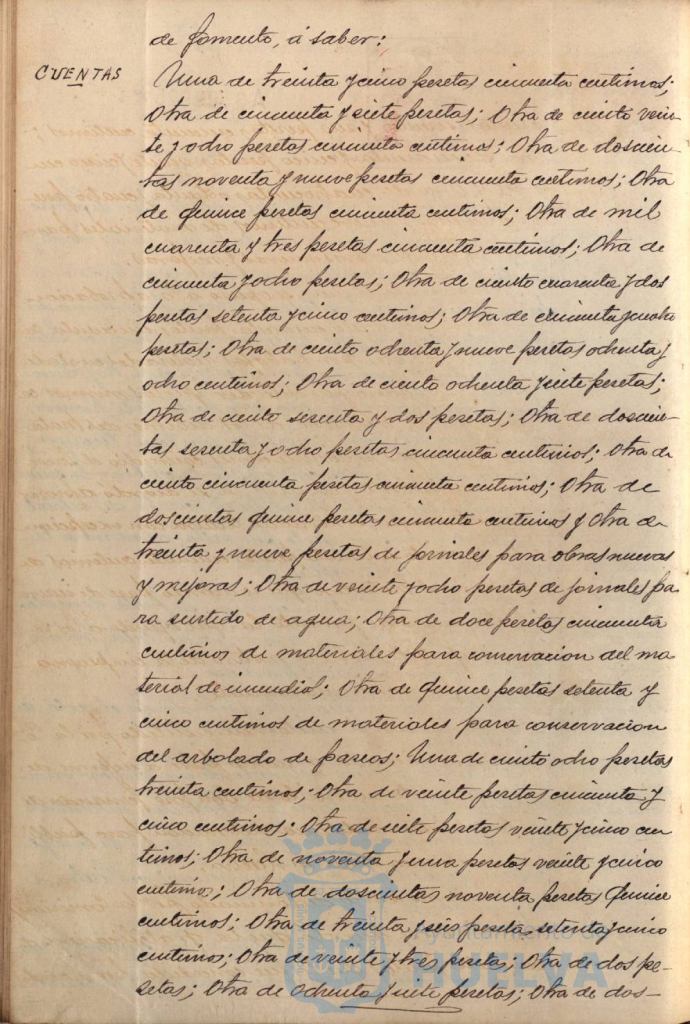 de fomento, á saber:
CUENTAS
Una de treinta y cinco pesetas cincuenta centimos;
Otra de cincuenta y siete pesetas; Otra de ciento vein-
te y ocho pesetas cincuenta centimos; Otra de doscien-
tas noventa y nueve pesetas cincuenta centimos; Otra
de quince pesetas cincuenta centimos; Otra de mil
cuarenta y tres pesetas cincuenta centimos; Otra de
cincuenta y ocho pesetas; Otra de ciento cuarenta y dos
pesetas setenta y cinco centimos; Otra de cincuenta y cuatro
pesetas; Otra de ciento ochenta y nueve pesetas ochenta y
ocho centimos; Otra de ciento ochenta y siete pesetas;
Otra de ciento sesenta y dos pesetas; Otra de doscien-
tas sesenta y ocho pesetas cincuenta centimos; Otra de
ciento cincuenta pesetas cincuenta centimos; Otra de
doscientas quince pesetas cincuenta centimos y Otra de
treinta y nueve pesetas de jornales para obras nuevas
y mejoras; Otra de veinte y ocho pesetas de jornales pa-
ra surtido de agua; Otra de doce pesetas cincuenta
centimos de materiales para conservacion del ma-
terial de incendios; Otra de quince pesetas setenta y
cinco centimos de materiales para conservacion
del arbolado de paseos; Una de ciento ocho pesetas
treinta centimos; Otra de veinte pesetas cincuenta y
cinco centimos; Otra de siete pesetas veinte y cinco cen-
timos; Otra de noventa y una pesetas veinte y cinco
centimos; Otra de doscientas noventa pesetas quince
centimos; Otra de treinta y seis pesetas setenta y cinco
centimos; Otra de veinte y tres pesetas; Otra de dos pe-
setas; Otra de ochenta y siete pesetas; Otra de dos-
Ayuntamiento de
HUELVA